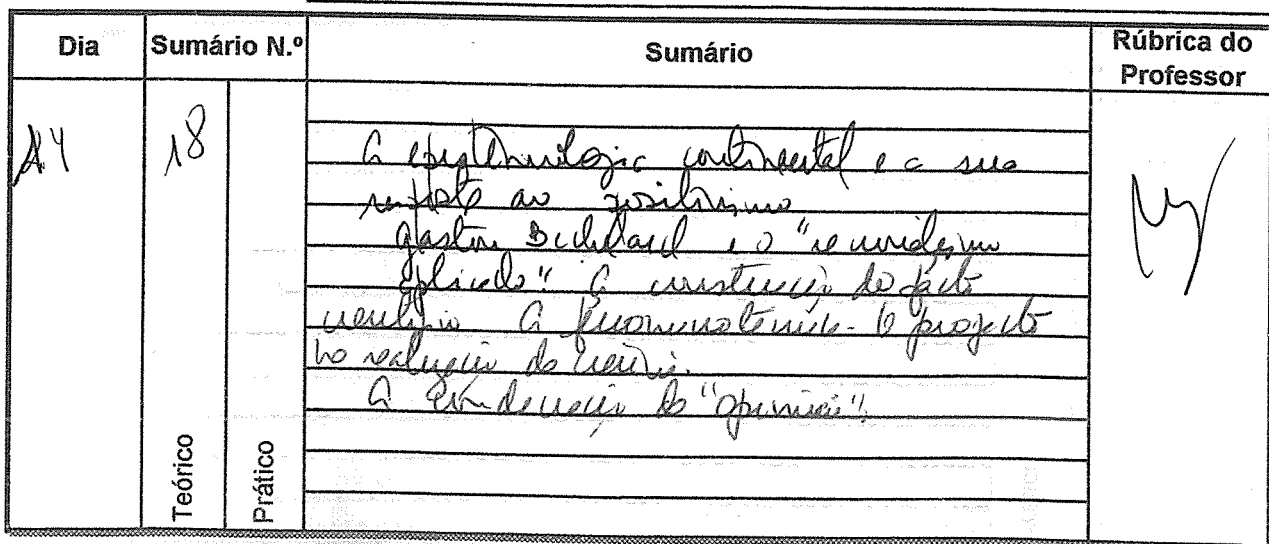 Dia Sumário N.º Sumário Rúbrica do Professor
14 18
A epistemologia continental e a sua
resposta ao positivismo
Gaston Bachelard e o "racionalismo
aplicado" A construção do facto
científico A fenomenotécnica. O projecto
na realização da ciência.
A condenação da "opinião".
Teórico Prático